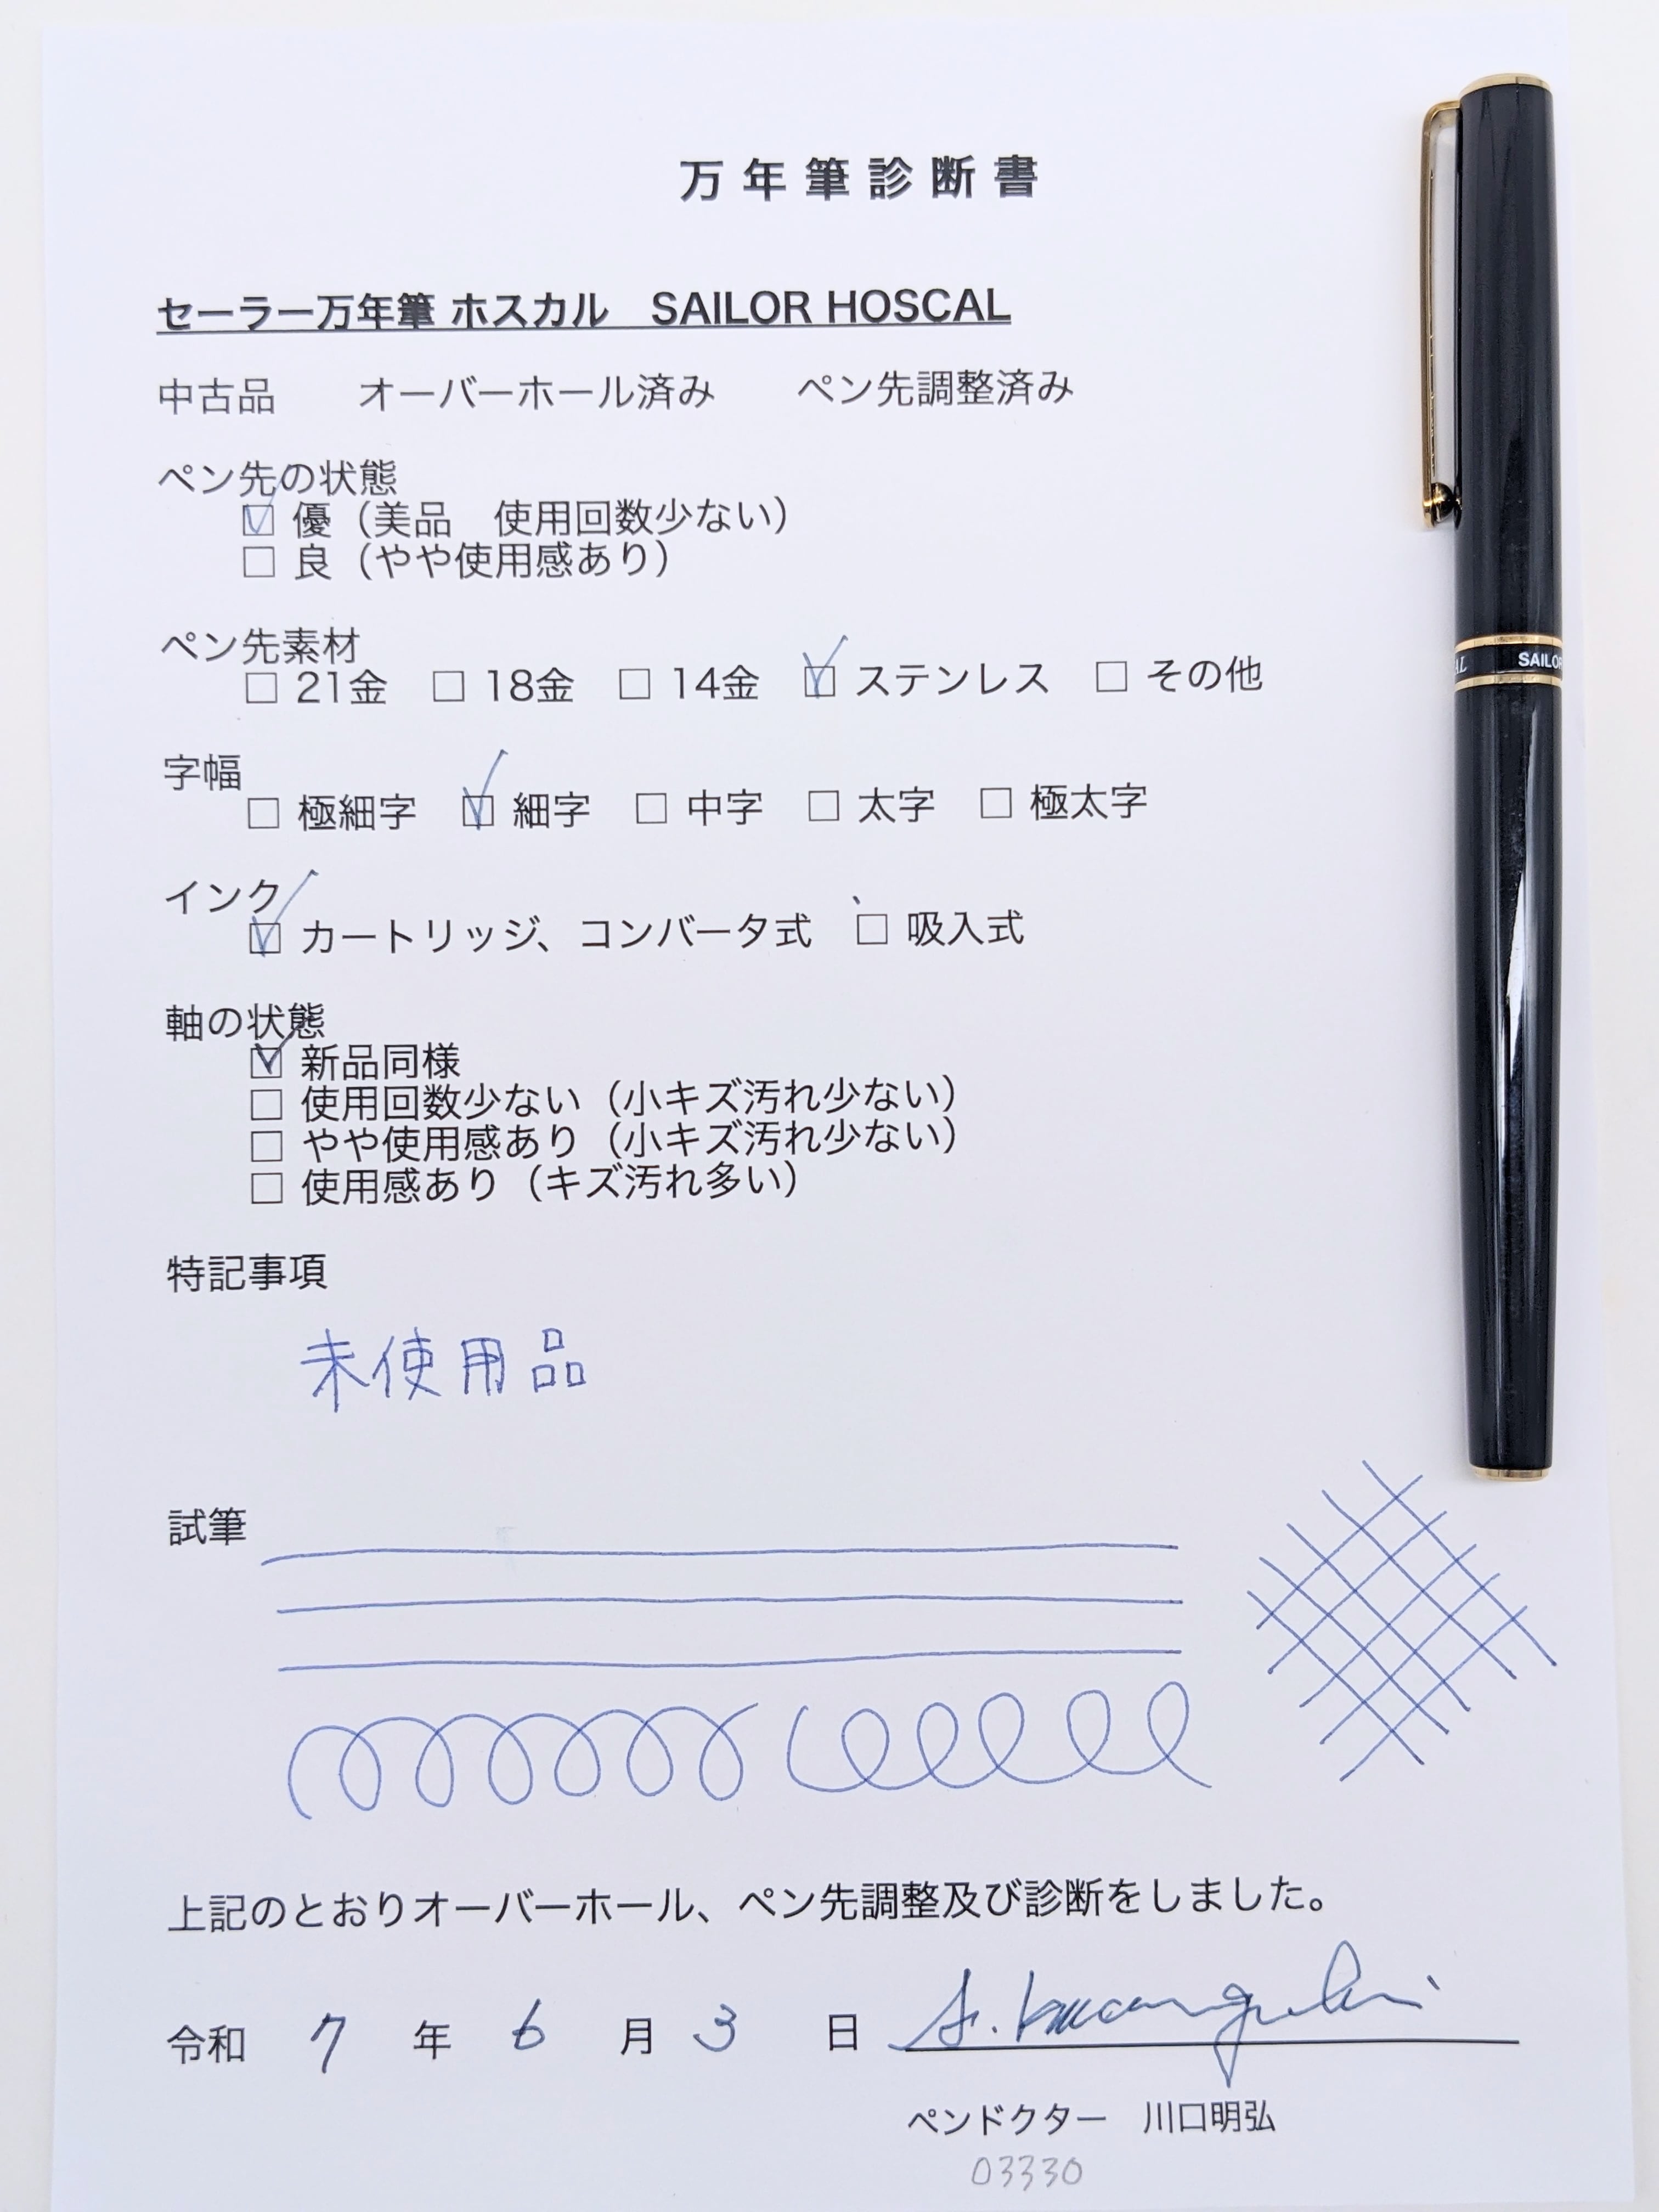 万年筆診断書
セーラー万年筆 ホスカル　SAILOR HOSCAL
中古品　オーバーホール済み　ペン先調整済み
ペン先の状態
☑ 優（美品　使用回数少ない）
☐ 良（やや使用感あり）
ペン先素材
☐ 21金 ☐ 18金 ☐ 14金 ☑ ステンレス ☐ その他
字幅
☐ 極細字 ☑ 細字 ☐ 中字 ☐ 太字 ☐ 極太字
インク
☑ カートリッジ、コンバータ式 ☐ 吸入式
軸の状態
☑ 新品同様
☐ 使用回数少ない（小キズ汚れ少ない）
☐ やや使用感あり（小キズ汚れ少ない）
☐ 使用感あり（キズ汚れ多い）
特記事項
未使用品
試筆
上記のとおりオーバーホール、ペン先調整及び診断をしました。
令和 7 年 6 月 3 日
ペンドクター　川口明弘
03330
AL SAILO